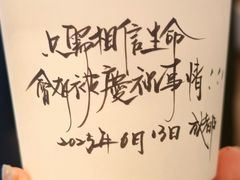 只要相信生命
會有被慶祝事情!!!
2023年6月13日